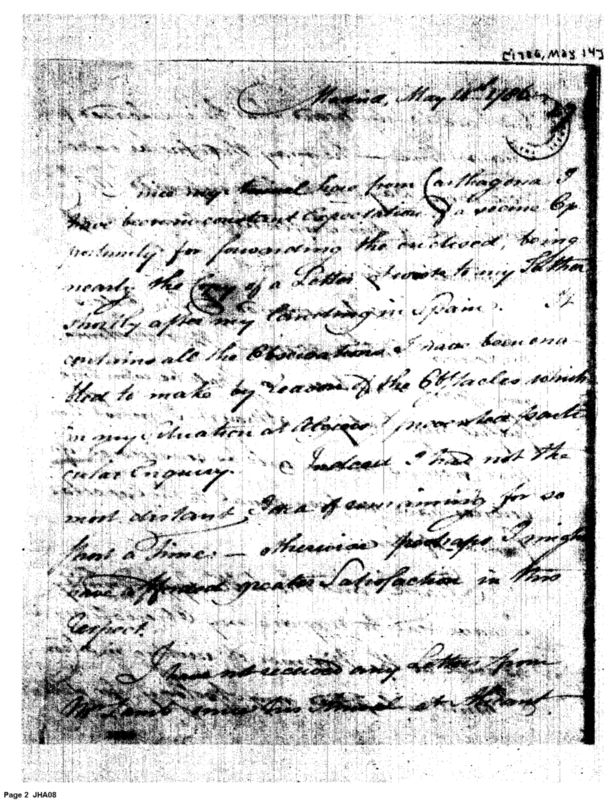 [1786, May 14]
Madrid, May 14th 1786
Since my arrival here from Carthagena I
have been in constant Expectation of a secure Op
portunity for forwarding the enclosed, being
nearly the Copy of a Letter I wrote to my Father
shortly after my Landing in Spain. It
contains all the Observations I have been ena
bled to make by reason of the Obstacles which
in my Situation at Algiers prevented parti
cular Enquiry. Indeed I had not the
most distant Idea of remaining for so
short a Time; — otherwise perhaps I might
have afforded greater Satisfaction in this
respect.
I have not received any Letters from
Mr Lamb since his Arrival at Alicant
Page 2 JHA08